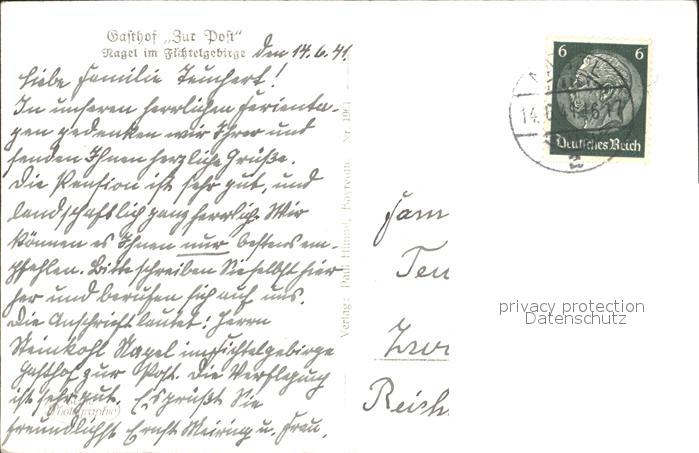 Gasthof „Zur Post"
Nagel im Fichtelgebirge
den 14.6.41.
Liebe Familie Teuchert!
In unseren herrlichen Ferienta-
gen gedenken wir Ihrer und
senden Ihnen herzliche Grüße.
Die Pension ist sehr gut, und
landschaftlich ganz herrlich. Wir
können es Ihnen nur bestens em-
pfehlen. Bitte schreiben Sie selbst hier
her und berufen sich auf uns.
Die Anschrift lautet: Herrn
Steinkohl Nagel im Fichtelgebirge
Gasthof zur Post. Die Verflegung
ist sehr gut. Es grüßt Sie
freundlichst Ernst Meiring u. Frau.
Photographie
Verlag: Paul Bayreuth Nr.
6 6
Deutsches Reich
14.
2
Fam
Teu
Zwi
Reich
privacy protection
Datenschutz